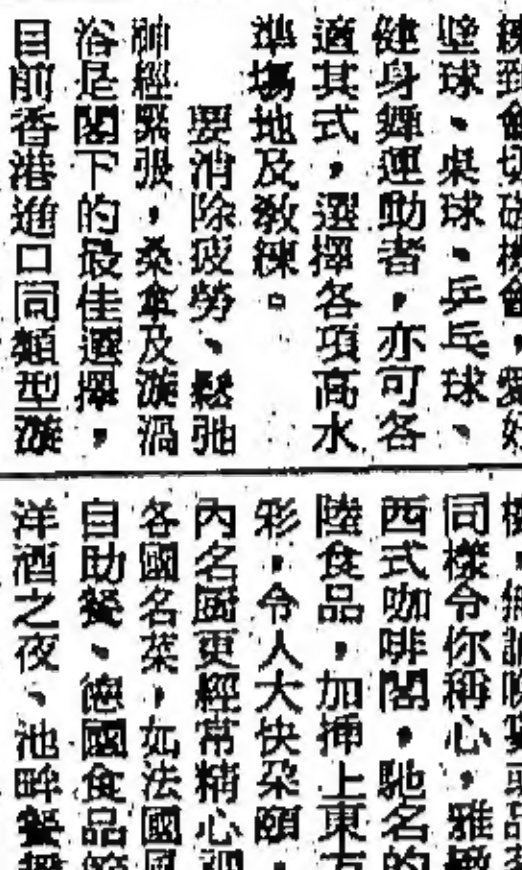 練到會切磋機會，愛好
壁球、桌球、乒乓球、
健身舞運動者，亦可各
適其式，選擇各項高水
準場地及教練。
要消除疲勞、鬆弛
神經緊張，桑拿及漩渦
浴是閣下的最佳選擇，
目前香港進口同類型漩
同樣令你稱心，雅緻
西式咖啡閣，馳名的
陸食品，加插上東方
彩，令人大快朵頤，
內名廚更經常精心調
各國名菜，如法國風
自助餐、德國食品節
洋酒之夜、池畔餐